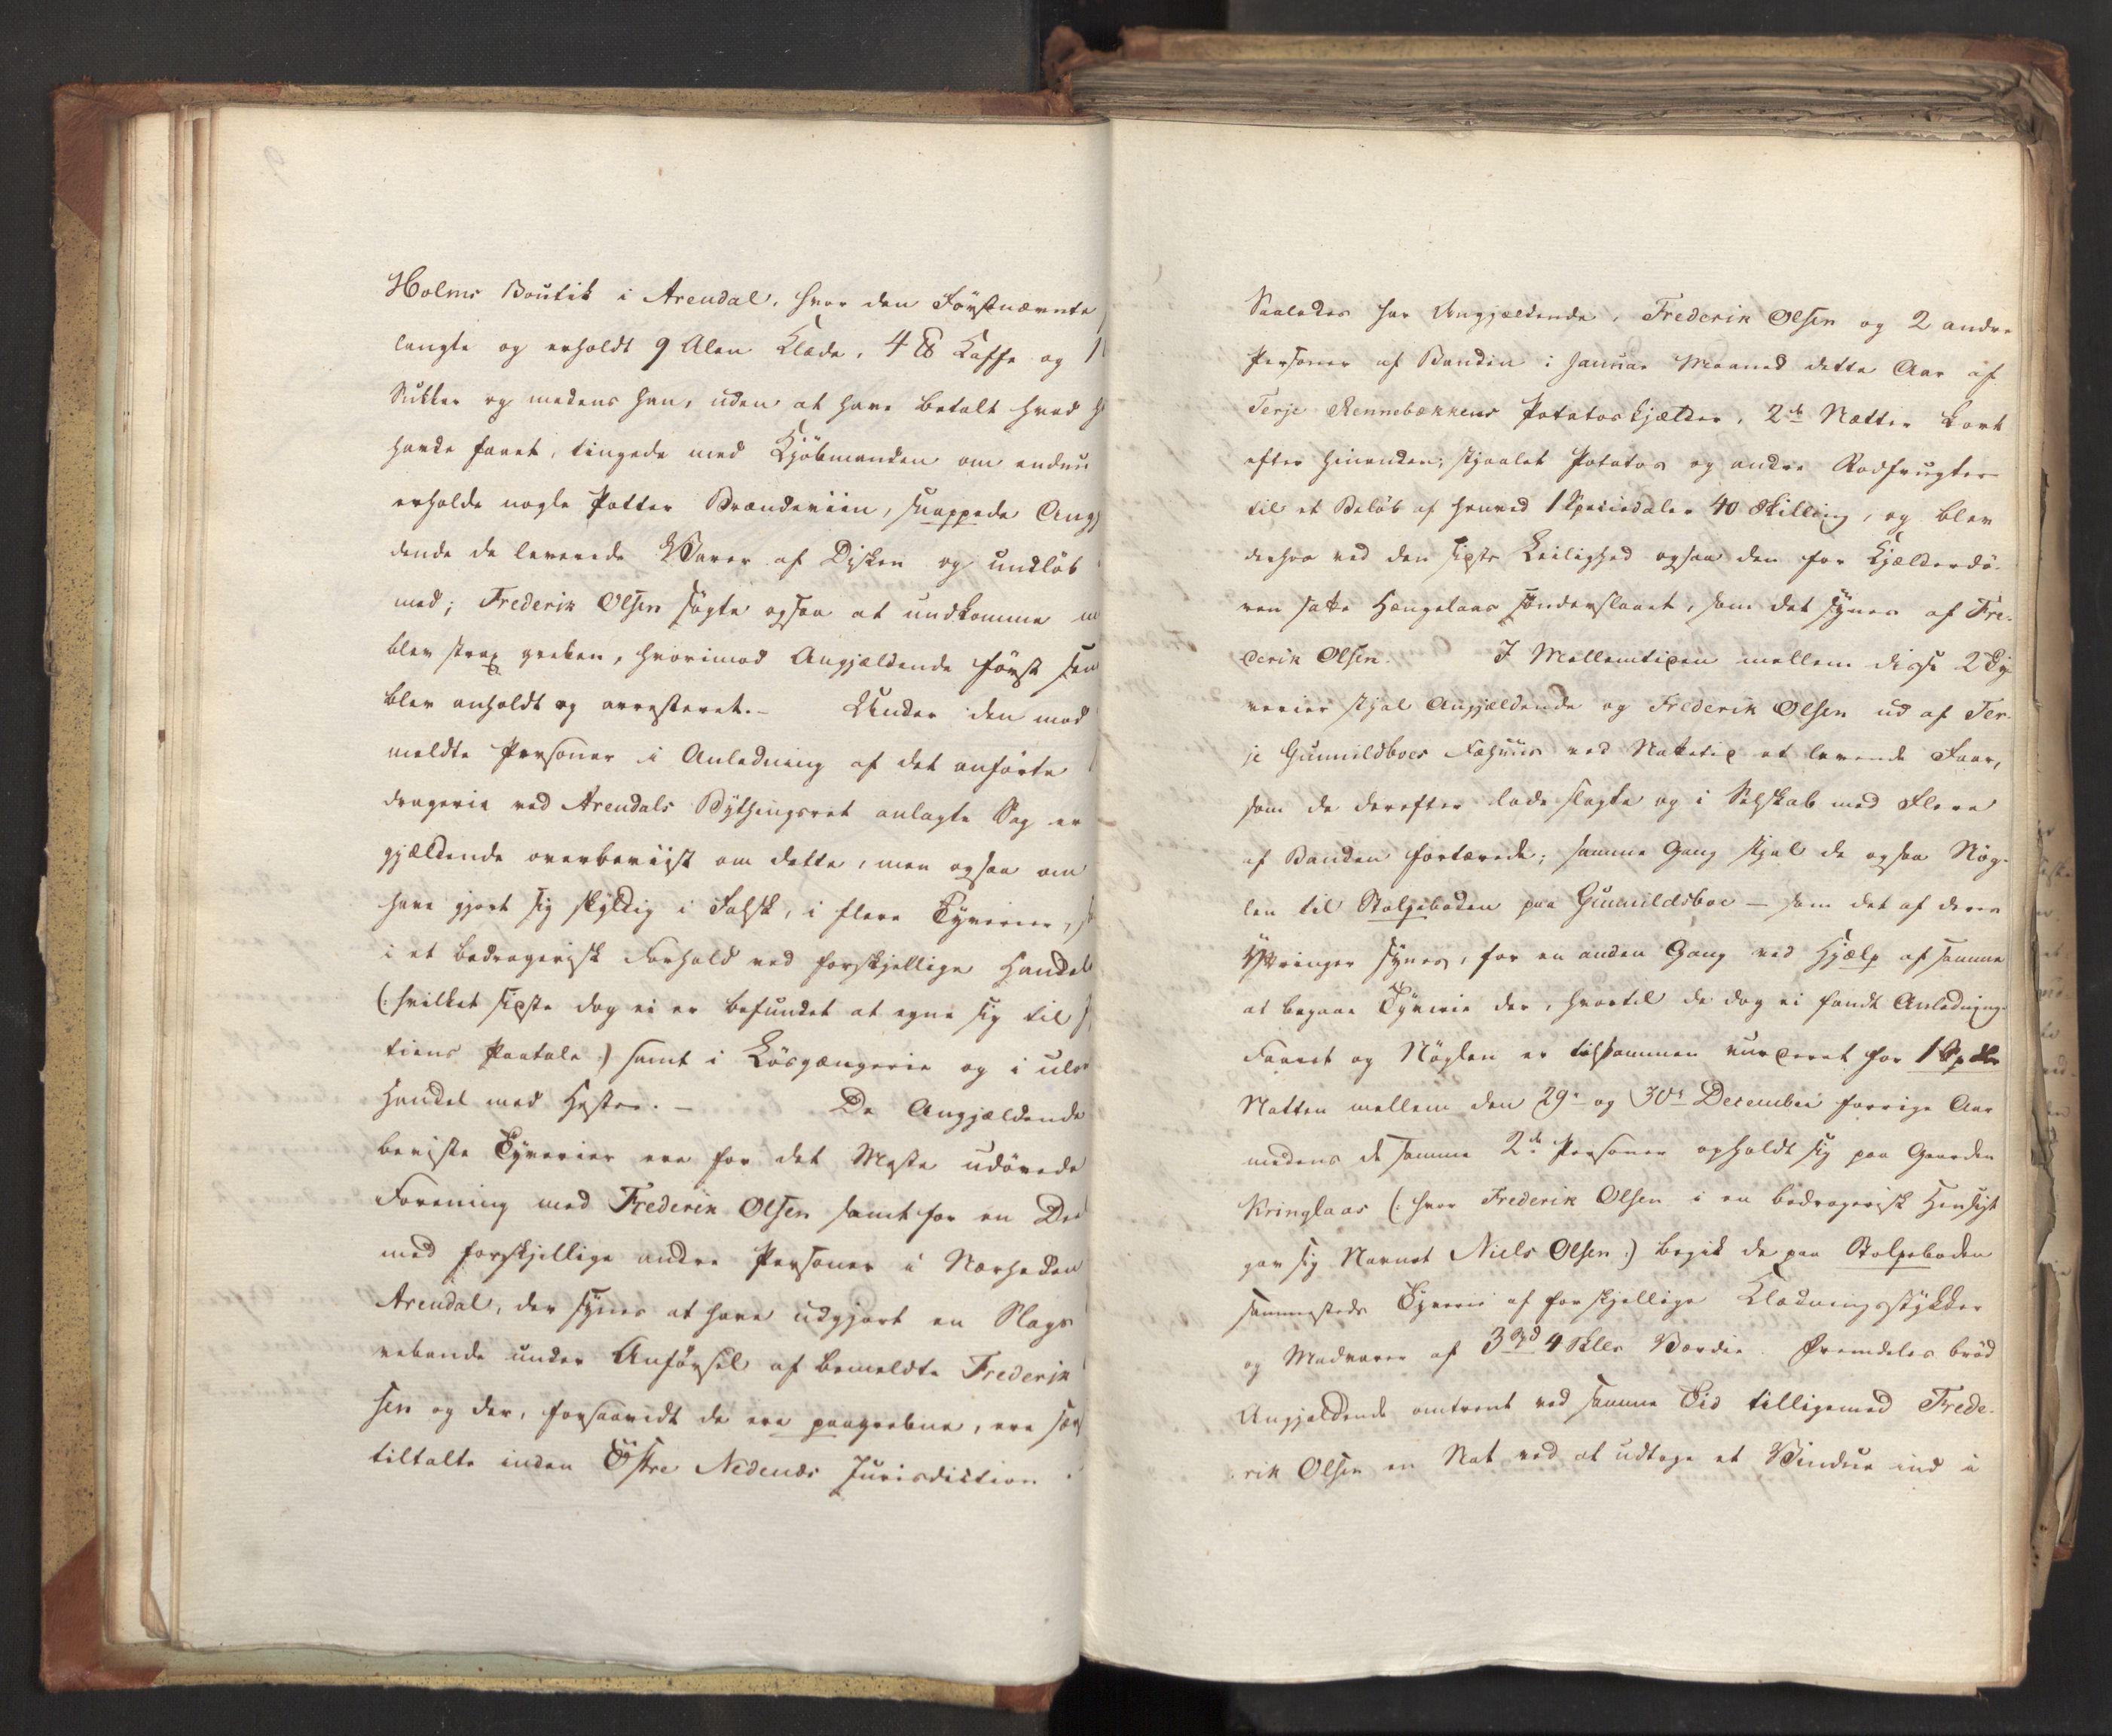 Holms Boutik i Arendal, hvor den Förstnævnte
langte og erholdt 9 Alen Klæde, 4 ℔ Kaffe og 1
Sukker og medens han, uden at have betalt hvad h
havde faaet, tingede med Kjöbmanden om endnu
erholde nogle Potter Brændeviin, snappede Angj
dende de leverede Varer af Disken og undlöb
med; Frederik Olsen sögte ogsaa at undkomme m
blev strax greben, hvorimod Angjældende först sen
blev anholdt og arresteret. – Under den mod
meldte Personer i Anledning af det anförte
dragerie ved Arendals Bythingsret anlagte Sag er
gjældende overbeviist om dette, men ogsaa om
have gjort sig skyldig i Falsk, i flere Tyverier, s
i et bedragerisk Forhold ved forskjellige Handel
(: hvilket sidste dog ei er befundet at egne sig til J
tiens Paatale :) samt i Lösgængerie og i ulov
Handel med Heste. – De Angjældende
beviste Tyverier ere for det Meste udövede
Forening med Frederik Olsen samt for en Deel
med forskjellige andre Personer i Nærheden
Arendal, der synes at have udgjort en Slags
vebande under Anförsel af bemeldte Frederik
sen og der, forsaavidt de ere paagrebne, ere sær
tiltalte inden Östre Nedenæs Jurisdiction.
Saaledes har Angjældende, Frederik Olsen og 2 andre
Personer af Banden i Januar Maaned dette Aar af
Terje Rennebækkens Potatoskjælder, 2de Nætter kort
efter hinanden, stjaalet Potatos og andre Rodfrugter
til et Belöb af henved 1 Speciedaler 40 Skilling, og blev
derhos ved den sidste Leilighed ogsaa den for Kjælderdö-
ren satte Hængelaas sönderslaaet, som det synes af Fre-
derik Olsen. I Mellemtiden mellem disse 2 Ty-
verier stjal Angjældende og Frederik Olsen ud af Ter-
je Gunnildboes Fæhuus ved Nattetid et levende Faar,
som de derefter lode slagte og i Selskab med Flere
af Banden fortærede; samme Gang stjal de ogsaa Nög-
len til Stolpeboden paa Gunnildsboe – som det af deres
Yttringer synes, for en anden Gang ved Hjælp af samme
at begaae Tyverie der, hvortil de dog ei fandt Anledning.
Faaret og Nöglen er tilsammen vurderet for 1 Spdlr
Natten mellem den 29de og 30te December forrige Aar
medens de samme 2de Personer opholdt sig paa Gaarden
Kringlaas (: hvor Frederik Olsen i en bedragerisk Hensigt
gav sig Navnet Niels Olsen :) begik de paa Stolpeboden
sammesteds Tyverie af forskjellige Klædningsstykker
og Madvarer af 3 Spd 4 Skillr Værdie. Fremdeles bröd
Angjældende omtrent ved samme Tid tilligemed Frede-
rik Olsen en Nat ved at udtage et Vindue ind i